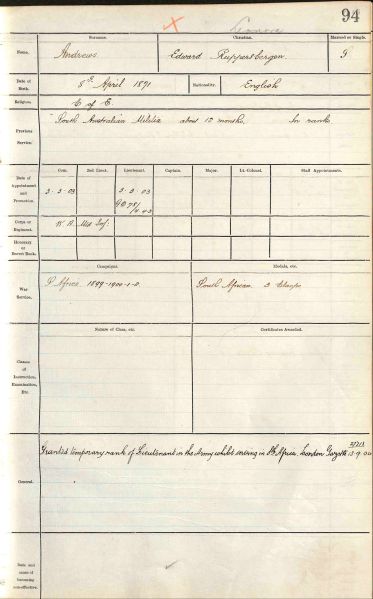 94
Surname. Christian. Married or Single.
Name. Andrews Edward Ruppertbergen S
Date of Birth. 8th April 1871 Nationality. English
Religion. C of E.
Previous Service. South Australian Militia about 15 months. In ranks
Date of Appointment and Promotion. Com. 2nd Lieut. Lieutenant. Captain. Major. Lt.-Colonel. Staff Appointments.
3-3-03 3-3-03
GO 75/4-03
Corps or Regiment. Mtd Inf:
Honorary or Brevet Rank.
Campaigns. Medals, etc.
War Service. S Africa 1899-1900-1-2. South African 3 Clasps
Nature of Class, etc. Certificates Awarded.
Classes of Instruction, Examination, Etc.
General. Granted temporary rank of Lieutenant in the Army whilst serving in Sth Africa. London Gazette 13-9-02
Date and cause of becoming non-effective.